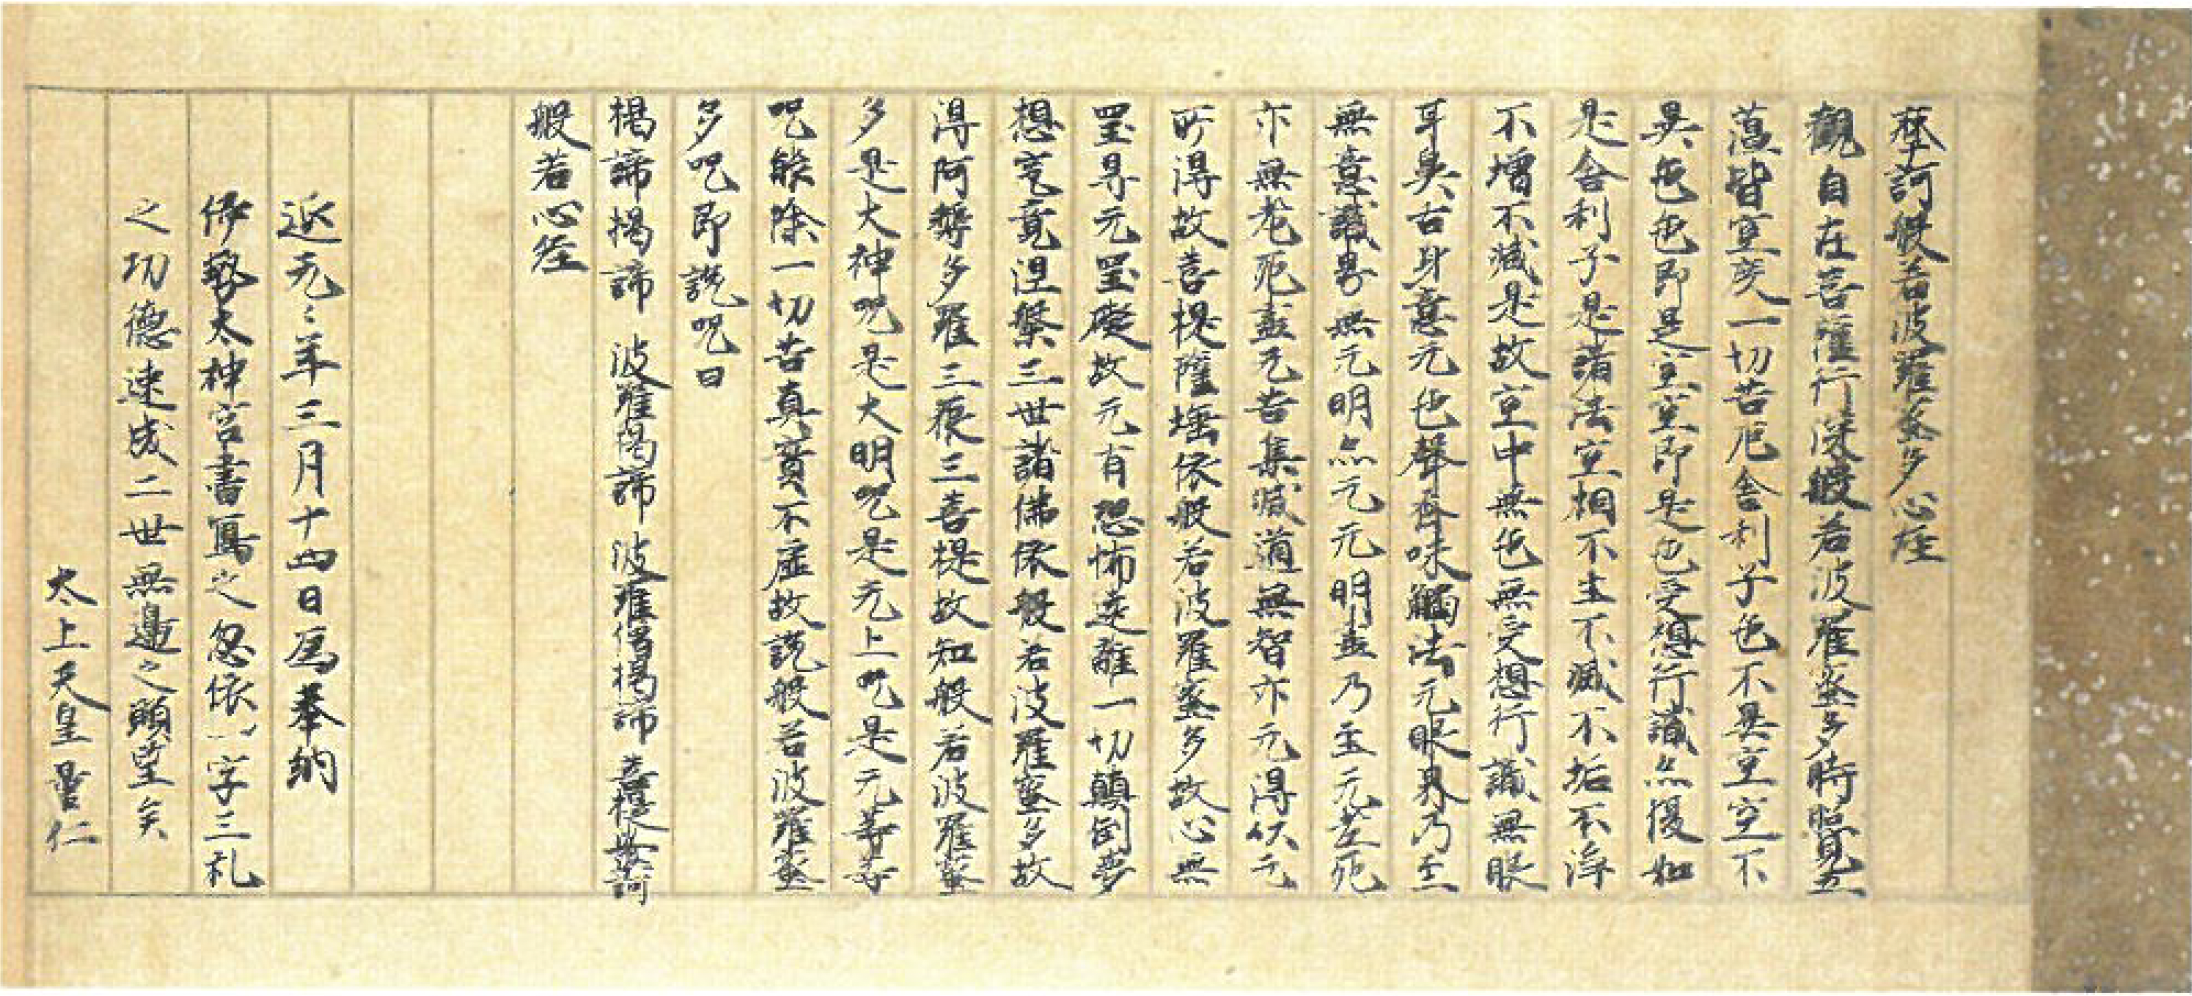 摩訶般若波羅蜜多心経
觀自在菩薩行深般若波羅蜜多時照見五
蘊皆空突一切苦厄舍利子色不異空空不
異色色即是空空即是色受想行識点復如
是舍利子是諸法空相不生不滅不垢不浄
不增不滅是故空中無色無受想行識無眼
耳鼻舌身意无色聲香味觸法无眼界乃至
無意識界無无明点无无明盡乃至无老死
亦無老死盡无苦集滅道無智亦无得以无
所得故菩提薩埵依般若波羅蜜多故心無
罣礙无罣礙故无有恐怖遠離一切顛倒夢
想究竟涅槃三世諸佛依般若波羅蜜多故
得阿耨多羅三藐三菩提故知般若波羅蜜
多是大神呪是大明呪是无上呪是无等等
呪能除一切苦真實不虚故説般若波羅蜜
多呪即説呪曰
揭諦揭諦 波羅揭諦 波羅僧揭諦 菩提娑婆訶
般若心経
延元々年三月十四日為奉納
伊勢太神宮書寫之忽依一字三礼
之功德速成二世無邊之願望矣
太上天皇量仁